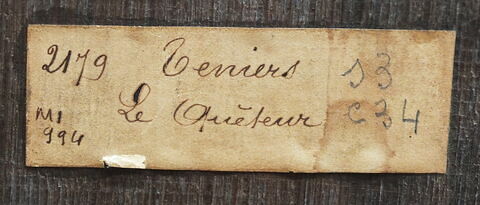 2179 Teniers 13
Le Quêteur C 34
MI
994